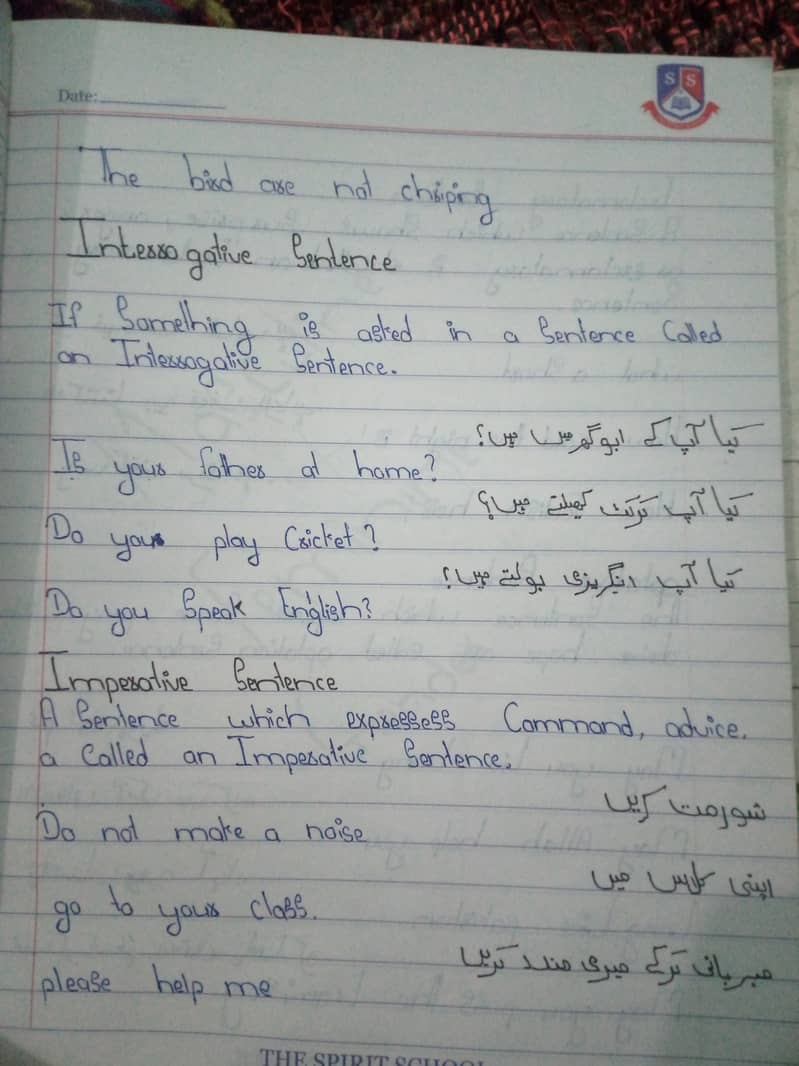 Date:
S S
The bird are not chriping
Interrogative Sentence
If Something is asked in a Sentence Called
an Interrogative Sentence.
کیا آپ کے ابو گھر میں ہیں؟
Is your father at home?
کیا آپ کرکٹ کھیلتے ہیں؟
Do your play Cricket?
کیا آپ انگریزی بولتے ہیں؟
Do you Speak English?
Imperative Sentence
A Sentence which expressess Command, advice.
a Called an Imperative Sentence.
شور مت کریں
Do not make a noise
اپنی کلاس میں
go to your class.
مہربانی کرکے میری مدد کریں
please help me
THE SPIRIT SCHOOL